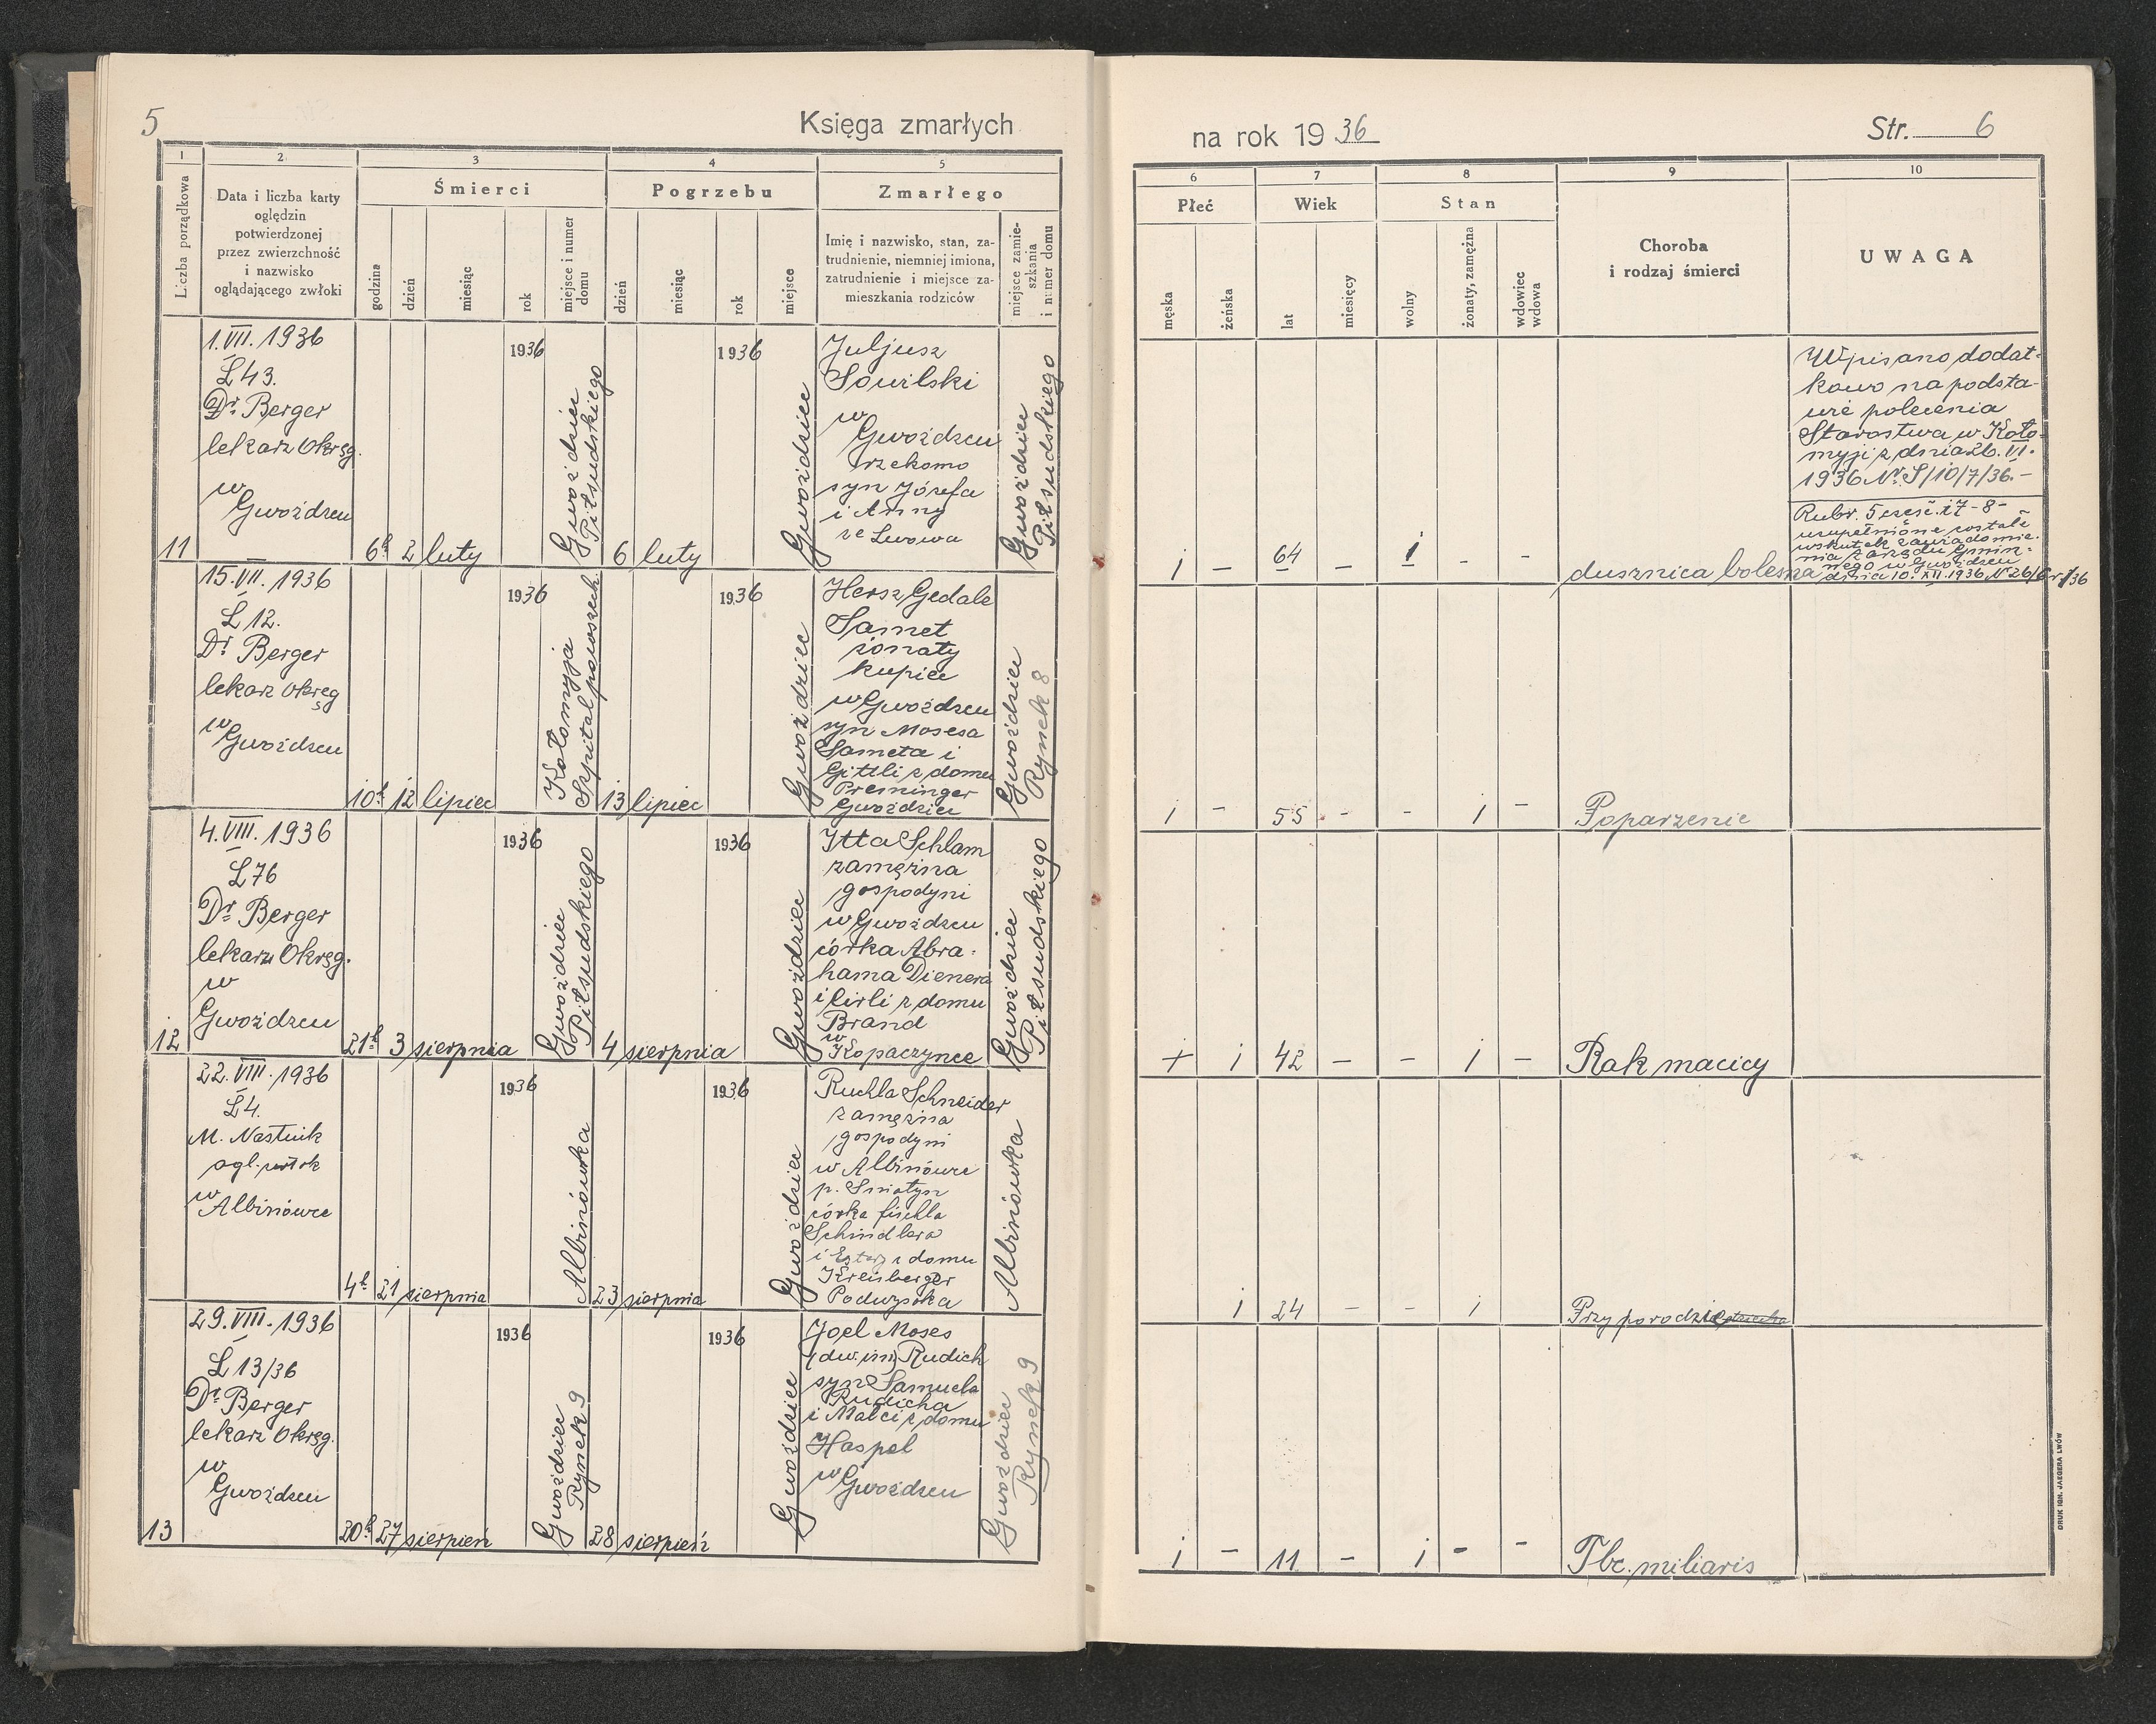 5
Księga zmarłych
1
2
3
4
5
Liczba porządkowa
Data i liczba karty
oględzin
potwierdzonej
przez zwierzchność
i nazwisko
oglądającego zwłoki
Śmierci
godzina
dzień
miesiąc
rok
miejsce i numer
domu
Pogrzebu
dzień
miesiąc
rok
miejsce
Zmarłego
Imię i nazwisko, stan, za-
trudnienie, niemniej imiona,
zatrudnienie i miejsce za-
mieszkania rodziców
miejsce zamie-
szkania
i numer domu
11
1.VII.1936
Ł43.
Dr. Berger
lekarz Okręg.
w
Gwoźdzcu
6h 2 luty
1936
Gwoździec
Piłsudskiego
6 luty
1936
Gwoździec
Juljusz
Sowilski
w
Gwoźdzcu
rzekomo
syn Józefa
i Anny
ze Lwowa
Gwoździec
Piłsudskiego
15.VII.1936
Ł 12.
Dr Berger
lekarz Okręg
w
Gwoźdzcu
10h 12 lipiec
1936
Kołomyja
Szpital powszech.
13 lipiec
1936
Gwoździec
Hersz Gedale
Samet
żonaty
kupiec
w Gwoźdzcu
syn Mosesa
Sameta i
Gittli z domu
Preminger
Gwoździec
Gwoździec
Rynek 8
12
4.VIII.1936
Ł76
Dr Berger
lekarz Okręg.
w
Gwoźdzcu
21h 3 sierpnia
1936
Gwoździec
Piłsudskiego
4 sierpnia
1936
Gwoździec
Itta Schlam
zamężna
gospodyni
w Gwoźdzcu
córka Abra-
hama Dienera
i Cirli z domu
Brand
w
Kopaczyńce
Gwoździec
Piłsudskiego
22.VIII.1936
Ł4.
M. Nastuik
ogl.
w
Albinówce
4h 21 sierpnia
1936
Albinówka
23 sierpnia
1936
Gwoździec
Ruchla Schneider
zamężna
gospodyni
w Albinówce
p. Sniatyn
córka Fischla
Schindlera
i Estery z domu
Kreisberger
Podwysoka
Albinówka
13
29.VIII.1936
Ł 13/36
Dr Berger
lekarz Okręg.
w
Gwoźdzcu
20h 27 sierpień
1936
Gwoździec
Rynek 9
28 sierpień
1936
Gwoździec
Joel Moses
(dw. im) Rudich
syn Samuela
Rudicha
i Malci z domu
Haspel
w Gwoźdzcu
Gwoździec
Rynek 9
na rok 1936
Str. 6
6
7
8
9
10
Płeć
męska
żeńska
Wiek
lat
miesięcy
Stan
wolny
żonaty, zamężna
wdowiec
wdowa
Choroba
i rodzaj śmierci
UWAGA
1 – 64 – 1 – – dusznica bolesna
Wpisano dodat-
kowo na podsta-
wie polecenia
Starostwa w Koło-
myji z dnia 26. VI.
1936 Nr. S/10/7/36.–
Rubr. 5 część. i 7-8-
uzupełnione zostałe
wskutek zawiadomie-
nia Zarządu Gmin-
nego w Gwoźdzcu
dnia 10. XII. 1936
1 – 55 – – 1 – Poparzenie
+ 1 42 – – 1 – Rak macicy
1 24 – – 1 Przy porodzie
1 – 11 – 1 – – Tbc. miliaris
DRUK IGN. JAEGERA LWÓW